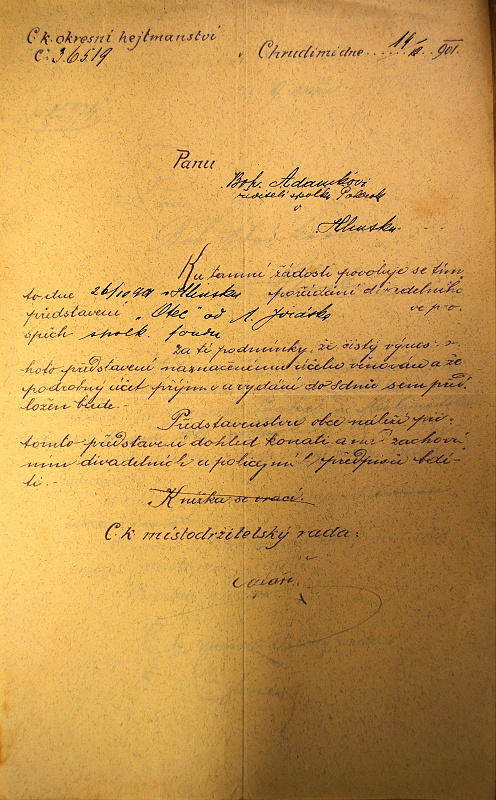 C. k. okresní hejtmanství
Č. 36519
v Chrudimi dne 14/10 901.
Panu
Boh. Adámkovi
řediteli spolku
v
Hlinsku.
Ku tamní žádosti povoluje se tím
to dne 26/10 901 v Hlinsku pořádání divadelního
představení "Otec" od A. Jiráska ve pro-
spěch spolk. fondu
za té podmínky, že čistý výnos to-
hoto představení naznačenému účelu věnován a že
podrobný účet příjmů a vydání do 8 dnů sem před
ložen bude.
Představenstvu obce náleží při
tomto představení dohled konati a nad zachová
ním divadelních a policejních předpisů bdí-
ti.
Knížka se vrací.
C. k. místodržitelský rada: